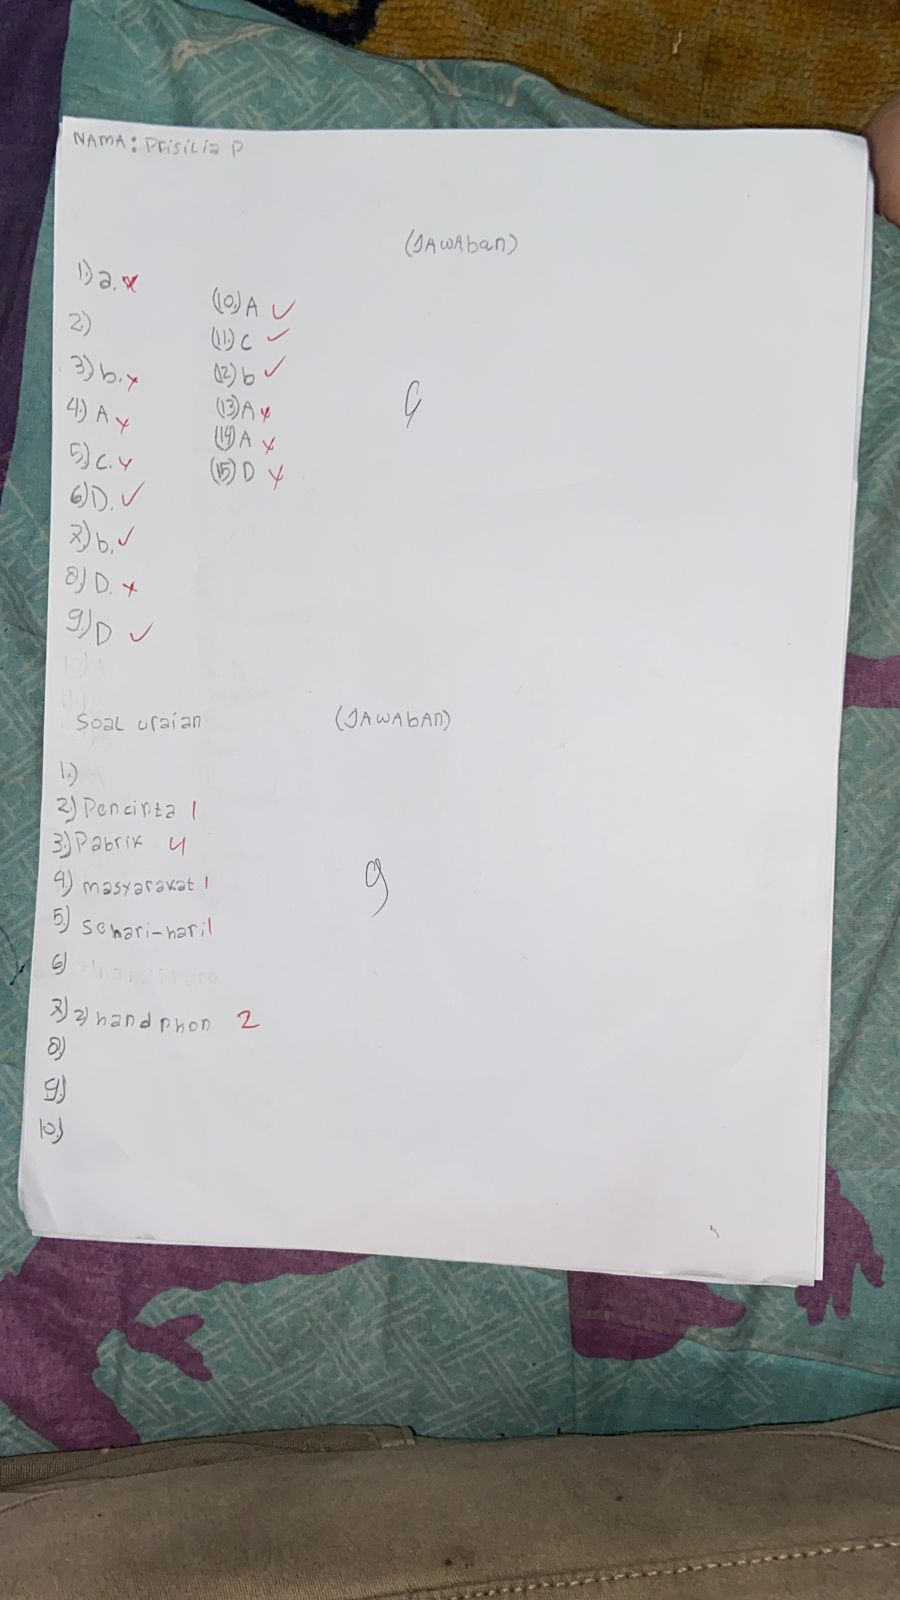 NAMA: Prisilia P
(JAWAban)
1.) a. x
2.)
3.) b. x
4.) A x
5.) c. x
6.) D. ✓
7.) b. ✓
8.) D. x
9.) D ✓
(10.) A ✓
(11.) c ✓
(12.) b ✓
(13.) A x
(14.) A x
(15.) D x
Soal uraian
(JAWAbAn)
1.)
2.) Pencipta 1
3.) Pabrik 4
4.) masyarakat 1
5.) sehari-hari 1
6.)
7.) 2) handphon 2
8.)
9.)
10.)
9